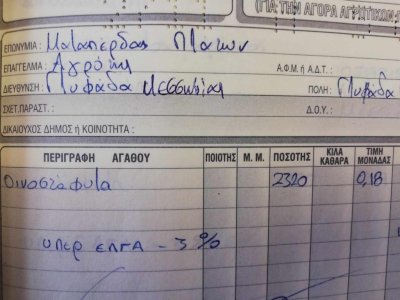 (ΓΙΑ ΤΗΝ ΑΓΟΡΑ ΑΓΡΟΤΙΚΩΝ
ΕΠΩΝΥΜΙΑ : Ματαπέρδας Πλάτων
ΕΠΑΓΓΕΛΜΑ : Αγρότης Α.Φ.Μ ή Α.Δ.Τ. :
ΔΙΕΥΘΥΝΣΗ : Γλυφάδα Μεσσηνίας ΠΟΛΗ: Γλυφάδα
ΣΧΕΤ. ΠΑΡΑΣΤ. : Δ.Ο.Υ. :
ΔΙΚΑΙΟΥΧΟΣ ΔΗΜΟΣ ή ΚΟΙΝΟΤΗΤΑ :
ΠΕΡΙΓΡΑΦΗ ΑΓΑΘΟΥ ΠΟΙΟΤΗΣ Μ. Μ. ΠΟΣΟΤΗΣ ΚΙΛΑ ΚΑΘΑΡΑ ΤΙΜΗ ΜΟΝΑΔΑΣ
Οινοστάφυλα 2320 0,18
υπέρ ΕΛΓΑ - 3 %